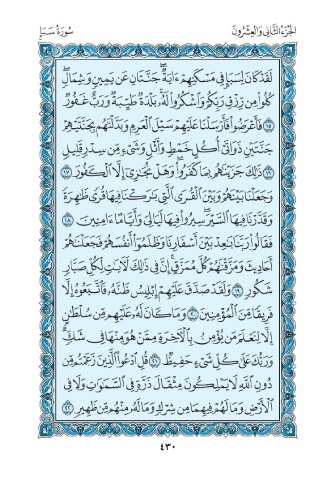 الجزء الثاني والعشرون
سورة سبإ
لَقَدْ كَانَ لِسَبَإٍ فِي مَسْكَنِهِمْ ءَايَةٌ جَنَّتَانِ عَن يَمِينٍ وَشِمَالٍ
كُلُوا۟ مِن رِّزْقِ رَبِّكُمْ وَٱشْكُرُوا۟ لَهُۥ بَلْدَةٌ طَيِّبَةٌ وَرَبٌّ غَفُورٌ
١٥ فَأَعْرَضُوا۟ فَأَرْسَلْنَا عَلَيْهِمْ سَيْلَ ٱلْعَرِمِ وَبَدَّلْنَٰهُم بِجَنَّتَيْهِمْ
جَنَّتَيْنِ ذَوَاتَىْ أُكُلٍ خَمْطٍ وَأَثْلٍ وَشَىْءٍ مِّن سِدْرٍ قَلِيلٍ
١٦ ذَٰلِكَ جَزَيْنَٰهُم بِمَا كَفَرُوا۟ وَهَلْ نُجَٰزِىٓ إِلَّا ٱلْكَفُورَ ١٧
وَجَعَلْنَا بَيْنَهُمْ وَبَيْنَ ٱلْقُرَى ٱلَّتِى بَٰرَكْنَا فِيهَا قُرًى ظَٰهِرَةً
وَقَدَّرْنَا فِيهَا ٱلسَّيْرَ سِيرُوا۟ فِيهَا لَيَالِىَ وَأَيَّامًا ءَامِنِينَ ١٨
فَقَالُوا۟ رَبَّنَا بَٰعِدْ بَيْنَ أَسْفَارِنَا وَظَلَمُوٓا۟ أَنفُسَهُمْ فَجَعَلْنَٰهُمْ
أَحَادِيثَ وَمَزَّقْنَٰهُمْ كُلَّ مُمَزَّقٍ إِنَّ فِى ذَٰلِكَ لَءَايَٰتٍ لِّكُلِّ صَبَّارٍ
شَكُورٍ ١٩ وَلَقَدْ صَدَّقَ عَلَيْهِمْ إِبْلِيسُ ظَنَّهُۥ فَٱتَّبَعُوهُ إِلَّا
فَرِيقًا مِّنَ ٱلْمُؤْمِنِينَ ٢٠ وَمَا كَانَ لَهُۥ عَلَيْهِم مِّن سُلْطَٰنٍ
إِلَّا لِنَعْلَمَ مَن يُؤْمِنُ بِٱلْءَاخِرَةِ مِمَّنْ هُوَ مِنْهَا فِى شَكٍّ
وَرَبُّكَ عَلَىٰ كُلِّ شَىْءٍ حَفِيظٌ ٢١ قُلِ ٱدْعُوا۟ ٱلَّذِينَ زَعَمْتُم مِّن
دُونِ ٱللَّهِ لَا يَمْلِكُونَ مِثْقَالَ ذَرَّةٍ فِى ٱلسَّمَٰوَٰتِ وَلَا فِى
ٱلْأَرْضِ وَمَا لَهُمْ فِيهِمَا مِن شِرْكٍ وَمَا لَهُۥ مِنْهُم مِّن ظَهِيرٍ ٢٢
٤٣٠